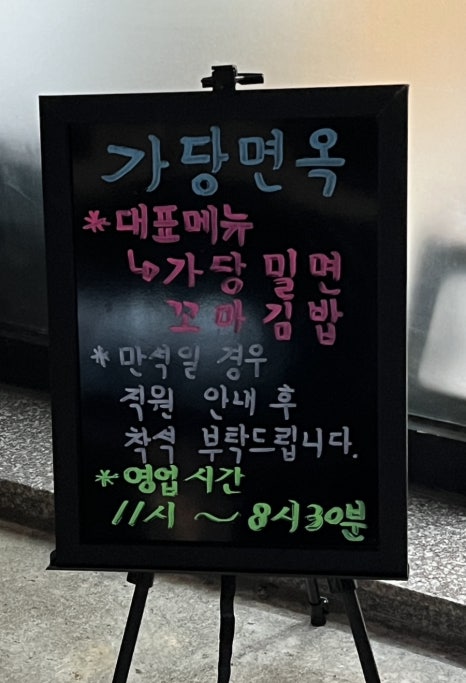 가당면옥
*대표메뉴
↳가당 밀면
꼬마김밥
*만석일 경우
직원 안내 후
착석 부탁드립니다.
*영업시간
11시 ~ 8시30분